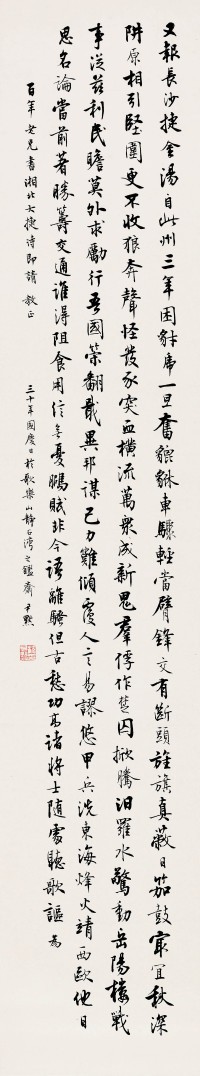 又報長沙捷金湯自此州三年困豺虎一旦奮貔貅車驟輕當臂鋒交有斷頭旌旗真蔽日笳鼓最宜秋深
阱原相引堅圍更不收狼奔聲怪發豕突血橫流萬衆成新鬼羣俘作楚囚掀騰汨羅水驚動岳陽樓戰
事從茲利民瞻莫外求勵行吾國策翻戢異邦謀己力難傾覆人言易謬悠甲兵洗東海烽火靖西歐他日
思名論當前著勝籌交通誰得阻食用信無憂鵩賦非今語離騷但古愁功高諸將士隨處聽歌謳 為
百年老兄書湘北大捷詩即請 教正 三十年國慶日於歌樂山靜石灣之鑑齋 尹默